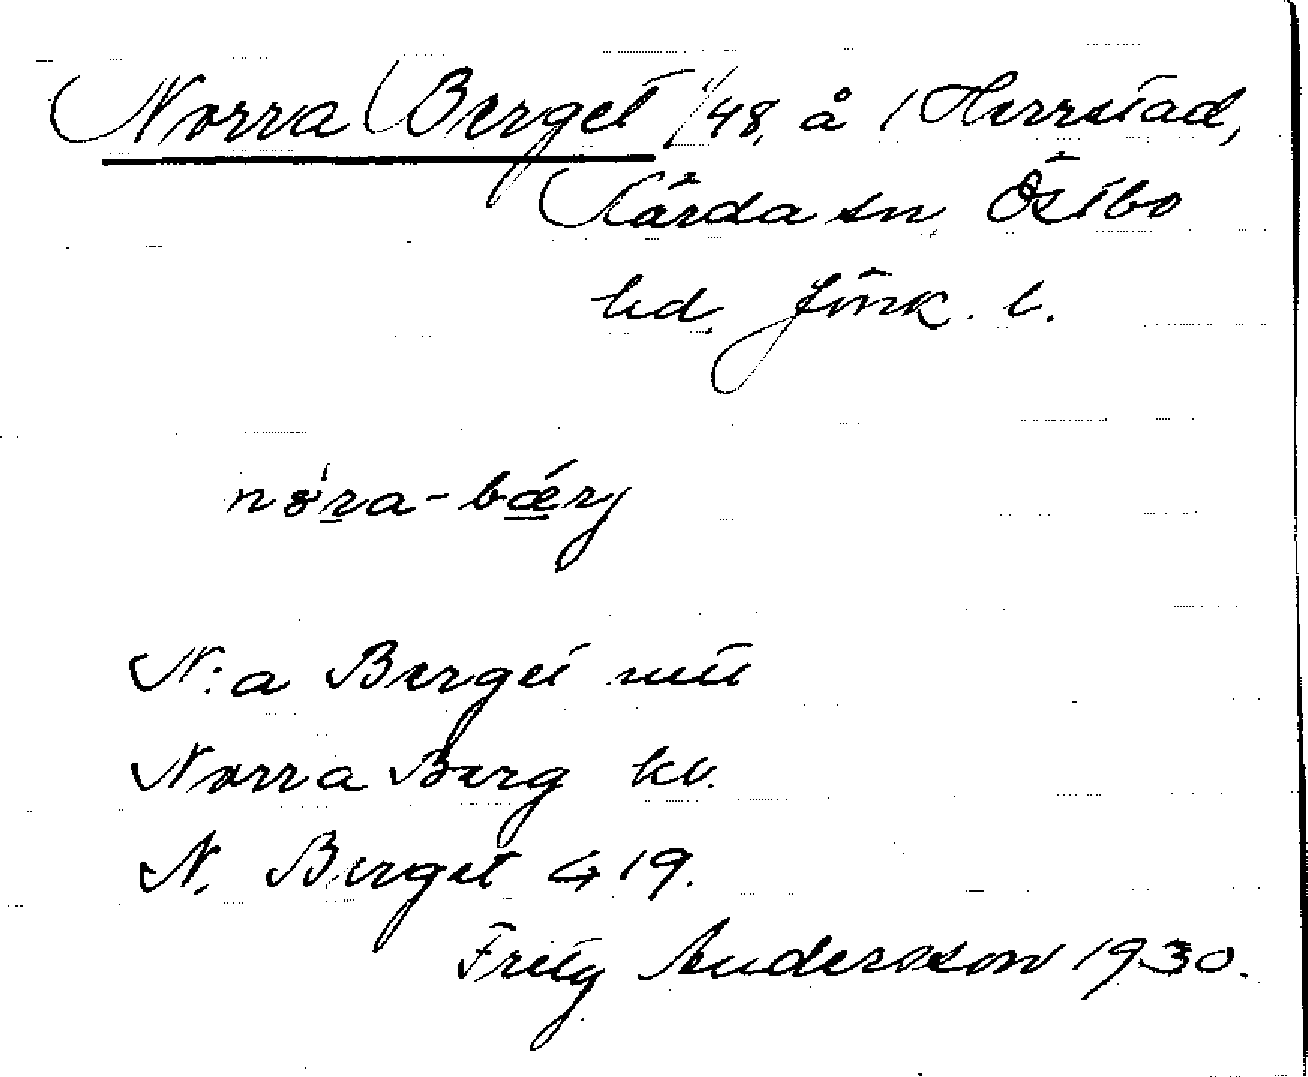 Norra Berget 1/48 å 1 Herrstad,
Kärda sn, Östbo
hd. Jönk. l.
nøra-bærj
N:a Berget utt
Norra Berg kv.
N. Berget G 19.
Fritz Andersson 1930.